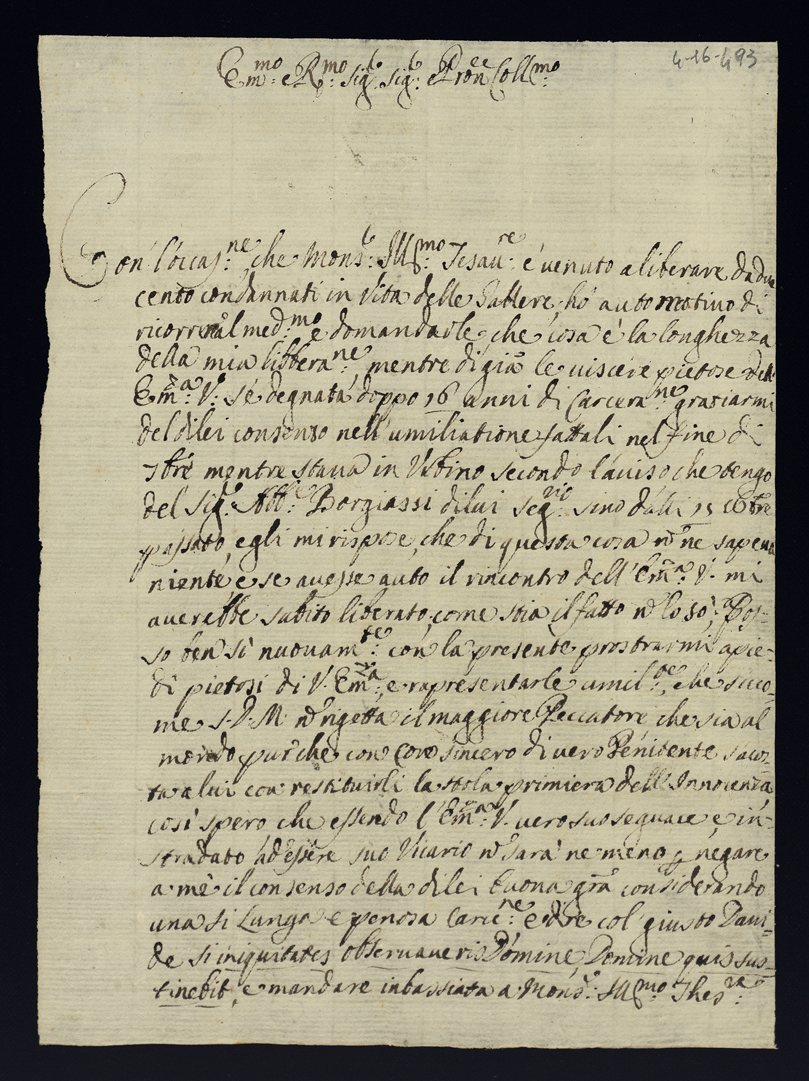 4-16-493
Em.mo e R.mo Sig.r Sig.r e Pron Coll.mo
Con l'occas.ne che Mons.r Ill.mo Tesau.re è venuto a liberare da due
cento condannati in Vita delle Gallere, hò auto motivo di
ricorrere al med.mo e domandarle che cosa è la longhezza
della mia libbera.ne, mentre di già le viscere pietose dell'
Em.za V. s'è degnata doppo 16 anni di Carcera.ne graziarmi
del di lei consenso nell'umiliatione fattali nel fine di
7bre mentre stava in Urbino secondo l'aviso che tengo
del Sig.r Abb.e Borgiassi di lui seg.rio sino dalli 15 8bre
passato, egli mi rispose, che di questa cosa nõ ne sapeva
niente e se avesse auto il rincontro dell'Em.za V. mi
averebbe subito liberato, come stia il fatto nõ lo sò; Pos-
so ben sì nuovam.te con la presente prostrarmi a pie-
di pietosi di V. Em.za, e rapresentarle umil.te, che sico-
me S. D. M. nõ rigetta il maggiore Peccatore che sia al
mondo pur che con Core sincero di vero Penitente s'acos-
ta a lui con restituirli la stola primiera dell'Innocenza
così spero che essendo l'Em.za V. vero suo seguace, e in-
stradato ad essere suo Vicario nõ sarà ne meno p negare
a mè il consenso della di lei buona grã considerando
una sì Lunga e penosa Carc.ne e dire col giusto Davi-
de si iniquitates observaveris Domine Domine quis sus-
tinebit, e mandare inbassiata a Mons.r Ill.mo Thes.re